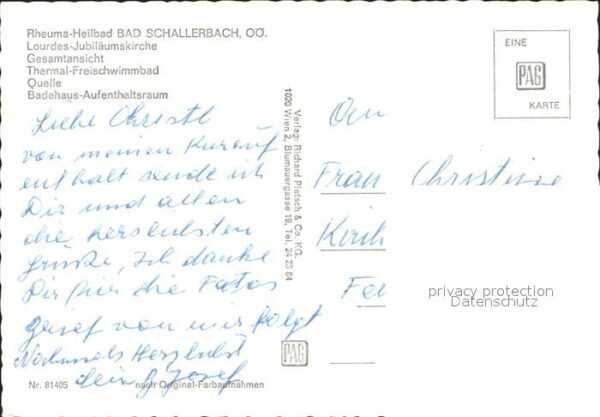 Rheuma-Heilbad BAD SCHALLERBACH, OÖ.
Lourdes-Jubiläumskirche
Gesamtansicht
Thermal-Freischwimmbad
Quelle
Badehaus-Aufenthaltsraum
Liebe Christl
von meinen Kurauf
enthalt sende ich
Dir und allen
die herslichsten
Grüße, Ich danke
Dir für die Fotos
Brief von mir folgt
Nochmals Herzlichst
dein Josef
Nr. 81405
nach Original-Farbaufnahmen
Verlag: Richard Pietsch & Co. KG.
1020 Wien 2, Blumauergasse 19, Tel. 24 25 64
PAG
EINE
PAG
KARTE
An
Frau Christine
Kirch
privacy protection
Datenschutz